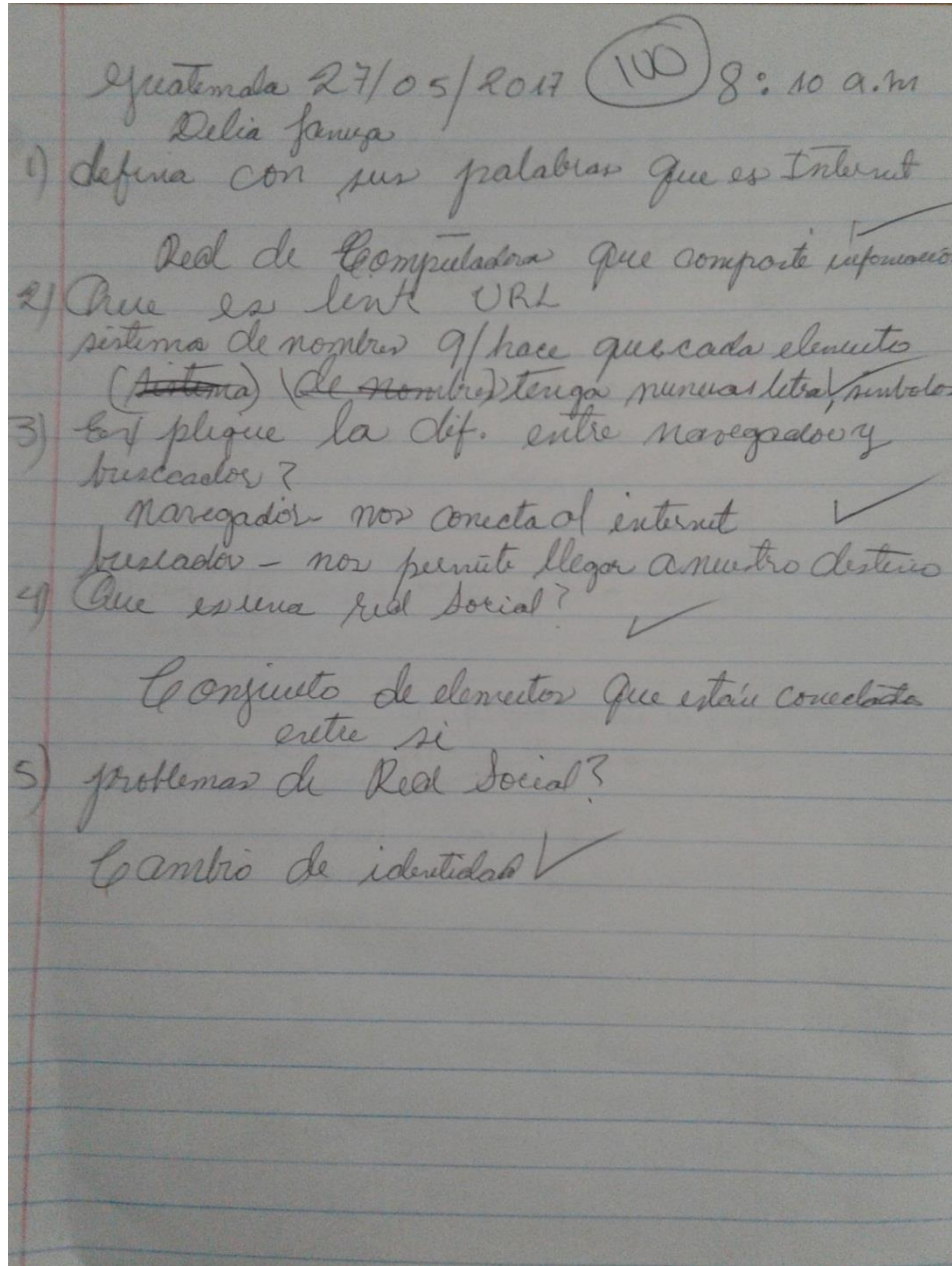 Guatemala 27/05/2017 (100) 8:10 a.m
Delia
1) defina con sus palabras que es Internet
Red de Computadora que comparte información
2) Que es link URL
sistema de nombres q/ hace que cada elemento
(sistema) (de nombres) tenga numeros letras, simbolos
3) Explique la dif. entre navegador y
buscador?
navegador- nos conecta al internet
buscador - nos permite llegar a nuestro destino
4) Que es una red social?
Conjunto de elementos que están conectados
entre si
5) problemas de Red Social?
Cambio de identidad